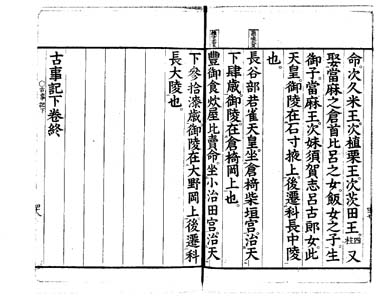 命次久米王次植栗王次茨田王四柱又
娶當麻之倉首比呂之女飯女之子生
御子當麻王次妹須賀志呂古郎女此
天皇御陵在石寸掖上後遷科長中陵
也。
長谷部若雀天皇坐倉椅柴垣宮治天
下肆歳御陵在倉椅岡上也。
豐御食炊屋比賣命坐小治田宮治天
下參拾漆歳御陵在大野岡上後遷科
長大陵也。
古事記下卷終